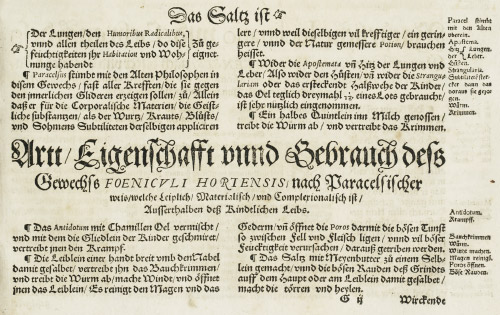 Das Saltz ist
Der Lungen / den Humoribus Radicalibus,
vnnd allen theilen des Leibs / do dise
feuchtigkeiten jhr Habitation vnd Woh-
nunge habendt
Zů ge-
eignet.
¶ Paracelsus stimbt mit den Alten Philosophen in
disem Gewechs / fast aller Krefften / die sie gegen
den innerlichen Glideren erzeigen sollen / zů: Allein
daß er für die Corporalische Materien / die Geist-
liche substantzen / als der Wurtz / Krauts / Blůsts /
vnd Sohmens Subtiliteten derselbigen appliciert
lert / vnnd weil dieselbigen vil krefftiger / ein gerin-
gere / vnnd der Natur gemessere Potion / brauchen
heisset.
¶ Widder die Apostemata vñ hitz der Lungen vnd
Leber / Also wider den Hůsten / vñ wider die Strangu-
lariam oder das ersteckende Halßwehe der Kinder /
das Oel teglich dreymal / eines Lots gebraucht /
ist sehr nutzlich eingenommen.
¶ Ein halbes Quintlein inn Milch genossen /
treibt die Würm ab / vnd vertreibt das Krimmen.
Paracel stimbt
mit den Alten
vberein.
Apostema.
Leber.
Hůsten.
Strangularia.
Würm.
Krimmen.
Artt / Eigenschafft vnnd Gebrauch deß
Gewechs FOENICVLI HORTENSIS / nach Paracelsischer
weis / welche Leiplich / Materialisch / vnd Complexionalisch ist /
Ausserthalben deß Kindlichen Leibs.
¶ Das Antidotum mit Chamillen Oel vermischt /
vnd mit den die Gliedlein der Kinder geschmiret /
vertreibt jnen den Krampf.
¶ Die Leiblein einer handt breit vmb den Nabel
damit gesalbet / vertreibt jhn das Bauchkrimmen /
vnd treibt die Würm ab / macht Winde / vnd öffnet
jnen das Leiblein / Es reinigt den Magen vnd das
Gederm / vñ öffnet die Poros darmit die bösen Dünst
so zwischen Fell und Fleisch ligen / vnnd vil böser
Feucktigkeit verursachen / darauß getriben werden.
¶ Das Saltz mit Meyenbutter zů einem Sel-
blein gemacht / vnnd die bösen Rauden deß Grindts
auff dem Haupt oder am Leiblein damit gesalbet /
macht die törren vnd heylen.
Antidotum.
Krampff.
Bauchkrimmen
Würm.
Winde machen.
Magen reinigt.
Poros öffnen.
Böse Rauden.
G ij Wirckende